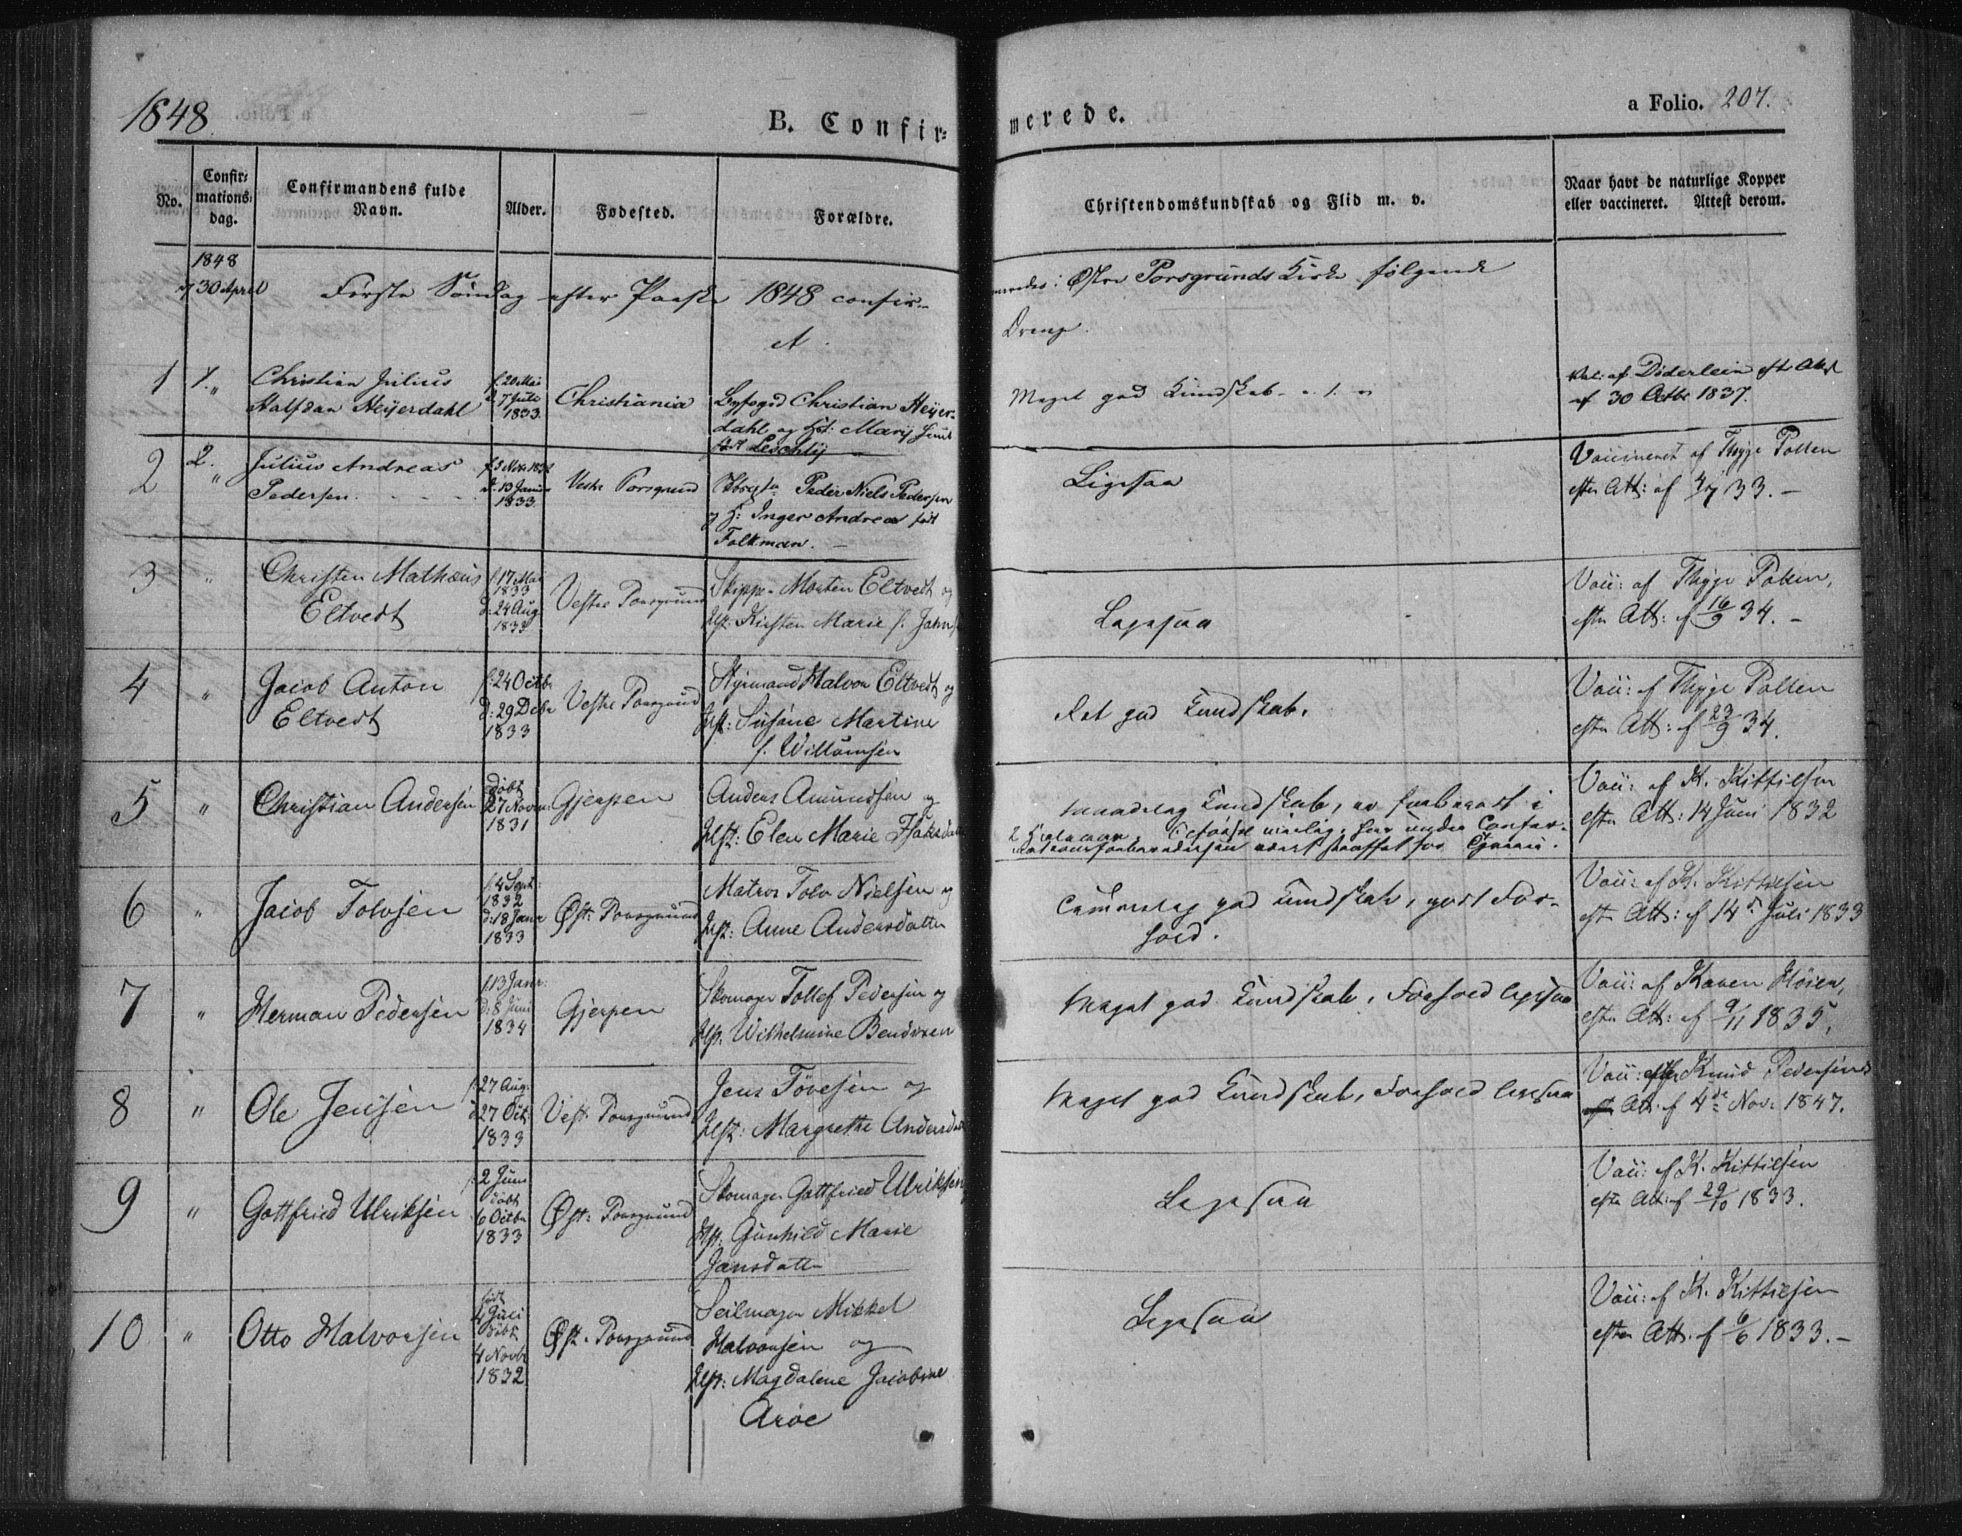 1848
B. Confir-
merede.
a Folio. 207.
No.
Confir-
mations-
dag.
Confirmandens fulde
Navn.
Alder.
Fødested.
Forældre.
Christendomskundskab og Flid m. v.
Naar havt de naturlige Kopper
eller vaccineret. Attest derom.
1848
30 April
Første Søndag efter Paaske 1848 confir-
meredes i Østre Porsgrunds Kirke følgende
A.
Drenge.
1
1.
"
Christian Julius
Halfdan Heyerdahl
f. 20 Mai
d. 7 Juli
1833.
Christiania
Byfoged Christian Heyer-
dahl og H:
Meget god Kundskab
af Døderlein eft. Att
af 30 Octbr 1837.
2
2.
"
Julius Andreas
Pedersen
f. 5 Nov. 1832
d. 13 Januar
1833
Vestre Porsgrund
Peder Niels Pedersen
og H: Inger Andrea født
Folkman. —
Ligesaa
Vaccineret af Thyge Polten
efter Att: af 4/7 33. —
3
"
Christen Mathæus
Eltvedt
f. 17 Mai
1833
d: 24 Aug
1833
Vestre Porsgrund
Skipper Morten Eltvedt og
Hst: Kirsten Marie f.
Ligesaa
Vacc: af Thyge Polten,
efter Att: af 16/9 34. —
4
"
Jacob Anton
Eltvedt
f. 24 Octbr
d: 29 Decbr
1833
Vestre Porsgrund
Styrmand Halvor Eltvedt og
Hst: Susane Martine
f. Willumsen
Ret god Kundskab.
Vacc: af Thyge Polten
efter Att: af 23/9 34.
5
"
Christian Andersen
døbt
27 Novbr:
1831
Gjerpen
Anders Amundsen og
Hst: Elen Marie
Maadelig Kundskab,
Vacc: af K. Kittilsen
efter Att: 14 Juni 1832
6
"
Jacob Tolvsen
f. 4 Sept:
1832
d: 18 Janr
1833
Øst: Porsgrund
Matros Tolv Nielsen og
Hst: Anne Andersdatter
god Kundskab, godt For-
hold.
Vacc: af K. Kittilsen
efter Att: af 14de Juli 1833
7
"
Herman Pedersen
f. 13 Janr:
d: 8 Juni
1834
Gjerpen
Skomager Tollef Pedersen og
Hst: Wilhelmine Bendixen
Meget god Kundskab, Forhold ligesaa
Vacc: af Karen Høien,
efter Att: af 9/11 1835.
8
"
Ole Jensen
f. 27 Aug:
d 27 Oct.
1833
Vest: Porsgrund
Jens Tovesen og
Hst: Margrethe
Meget god Kundskab, Forhold ligesaa
Vacc: efter Knud Pedersens
Att. af 4de Nov: 1847.
9
"
Gottfried Ulriksen
f. 2 Juni
døbt
6 Octbr
1833
Øst: Porsgrund
Skomager Gottfried Ulriksen
Hst: Gunhild Marie
Jansdatter
Ligesaa
Vacc: af K. Kittilsen
efter Att: af 29/10 1833.
10
"
Otto Halvorsen
født
4 Juli
døbt
4 Novbr
1832
Øst. Porsgrund
Seilmager Mikkel
Halvorsen og
Hst: Magdalene Jacobine
Arøe
Ligesaa
Vacc: af K. Kittilsen
efter Att. af 6/6 1833. —